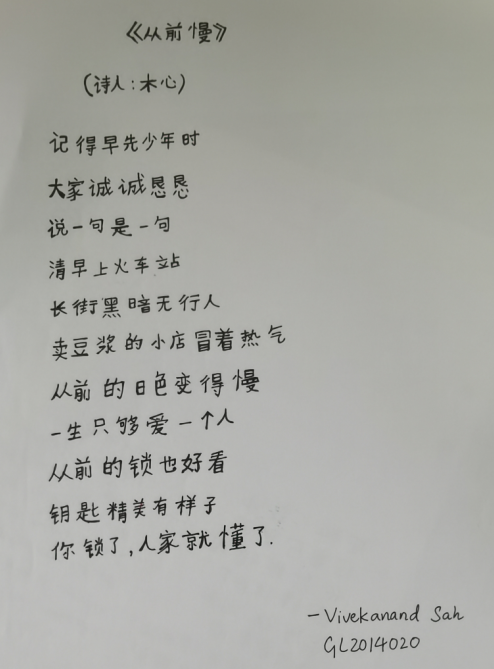 《从前慢》
(诗人:木心)
记得早先少年时
大家诚诚恳恳
说一句是一句
清早上火车站
长街黑暗无行人
卖豆浆的小店冒着热气
从前的日色变得慢
一生只够爱一个人
从前的锁也好看
钥匙精美有样子
你锁了,人家就懂了.
-Vivekanand Sah
GL2014020